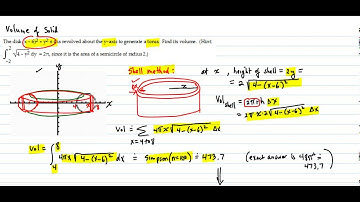 Volume of Solid
is revolved about the y-axis to generate a torus. Find its volume. (Hint:
∫₋₂² √(4 − y²) dy = 2π, since it is the area of a semicircle of radius 2.)
Shell method:
at x, height of shell = 2y =
= 2√(4−(x−6)²)
Vol shell = 2πx h ΔX
= 2πx·2√(4−(x−6)²) ΔX
Vol = Σ 4πx√(4−(x−6)²) ΔX
x=4→8
Vol = ∫₄⁸ 4πx√(4−(x−6)²) dx = Simpson(n=100) = 473.7
(exact answer is 48π² = 473.7)